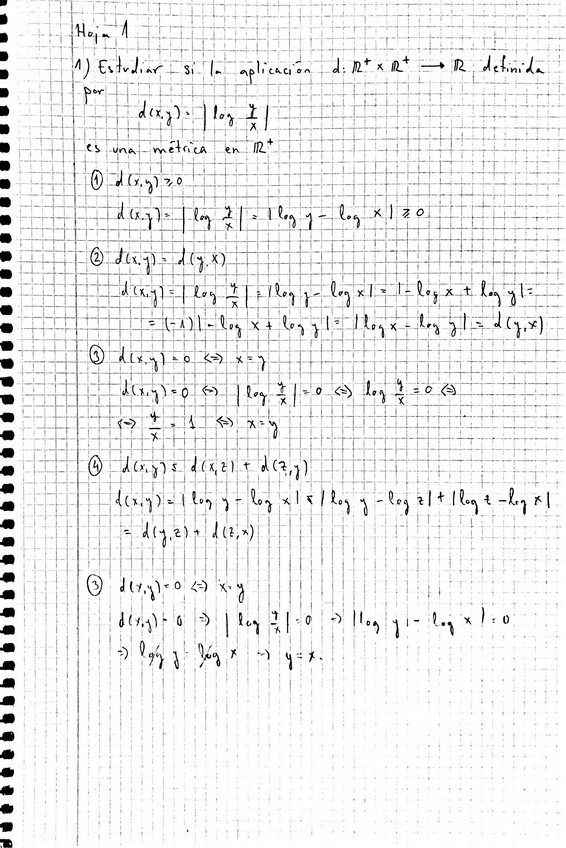 Hoja 1
1) Estudiar si la aplicación d: ℝ⁺ × ℝ⁺ → ℝ definida
por
d(x,y) = | log y/x |
es una métrica en ℝ⁺
① d(x,y) ≥ 0
d(x,y) = | log y/x | = | log y - log x | ≥ 0
② d(x,y) = d(y,x)
d(x,y) = | log y/x | = | log y - log x | = | - log x + log y | =
= (-1) | - log x + log y | = | log x - log y | = d(y,x)
③ d(x,y) = 0 <=> x = y
d(x,y) = 0 <=> | log y/x | = 0 <=> log y/x = 0 <=>
<=> y/x = 1 <=> x = y
④ d(x,y) ≤ d(x,z) + d(z,y)
d(x,y) = | log y - log x | ≤ | log y - log z | + | log z - log x |
= d(y,z) + d(z,x)
③ d(x,y) = 0 <=> x = y
d(x,y) = 0 => | log y/x | = 0 => | log y | - log x | = 0
=> log y = log x => y = x.